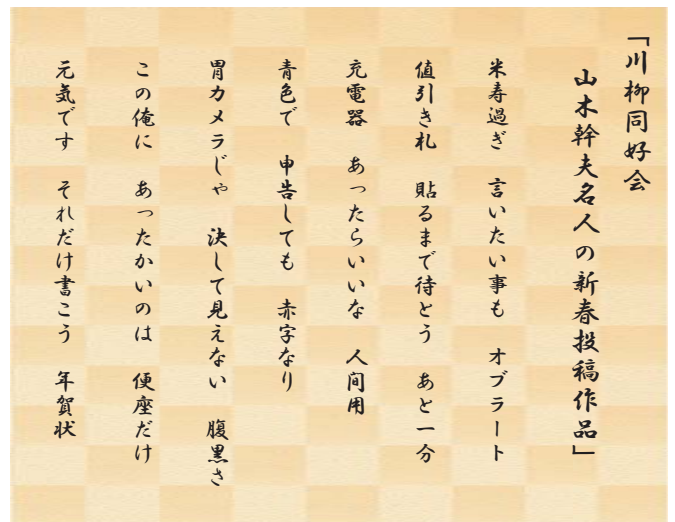 「川柳同好会
山木幹夫名人の新春投稿作品」
米寿過ぎ 言いたい事も オブラート
値引き札 貼るまで待とう あと一分
充電器 あったらいいな 人間用
青色で 申告しても 赤字なり
胃カメラじゃ 決して見えない 腹黒さ
この俺に あったかいのは 便座だけ
元気です それだけ書こう 年賀状